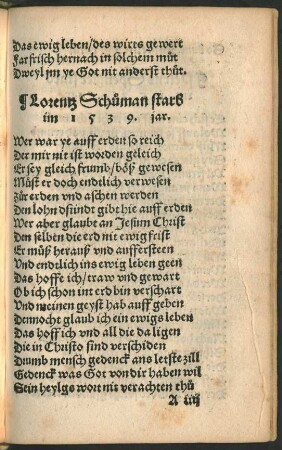 Das ewig leben/des wirts gewert
Far frisch hernach in solchem můt
Dweyl jm ye Got nit anderst thůt.
¶ Lorentz Schůman starb
im 1539. jar.
Wer war ye auff erden so reich
Der mir nit ist worden geleich
Er sey gleich frumb/böß gewesen
Můst er doch endtlich verwesen
Zůr erden und aschen werden
Den lohn dsündt gibt hie auff erden
Wer aber glaubt an Jesum Christ
Den selben die erd nit ewig frist
Er můß herauß und auffersteen
Und endtlich ins ewig leben geen
Das hoffe ich/traw und gewart
Ob ich schon int erd bin verschart
Und meinen geyst hab auff geben
Dennocht glaub ich ein ewigs leben
Das hoff ich und all die da ligen
Die in Christo sind verschiden
Drumb mensch gedenck ans letste zill
Gedenck was Got von dir haben wil
Sein heylgs wort nit verachten thů
A iiij